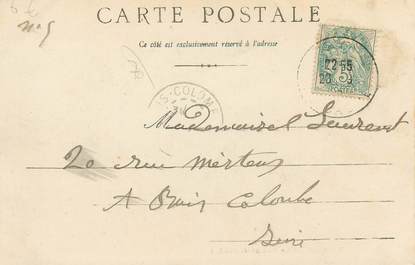 CARTE POSTALE
Ce côté est exclusivement réservé à l'adresse
22 55
5
POSTES
S-COLOMB
Mademoiselle Laurent
20 rue Mertens
A Bois Colombe
Seine